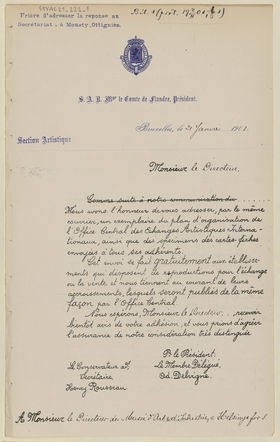 Prière d'adresser la reponse au
Secrétariat : à Mousty, Ottignies.
S. A. R. Mgr le Comte de Flandre, Président.
Bruxelles, le 21 Janvier 1901.
Section Artistique
Monsieur le Directeur,
Comme suite à notre communication du
Nous avons l'honneur de vous adresser, par le même
courrier, un exemplaire du plan d'organisation de
l'Office Central des Echanges Artistiques Interna-
tionaux, ainsi que des specimens des cartes-fiches
envoyées à tous ses adhérents.
Cet envoi se fait gratuitement aux établisse-
ments qui disposent de reproductions pour l'échange
ou la vente et nous tiennent au courant de leurs
accroissements, lesquels seront publiés de la même
façon par l'Office Central.
Nous espérons, Monsieur le Directeur, recevoir
bientôt avis de votre adhésion, et vous prions d'agréer
l'assurance de notre considération très distinguée.
P. le Président.
Le Conservateur
Secrétaire
Henry Rousseau
Le Membre Délégué,
Od. Delvigne.
A Monsieur le Directeur du Musée d'Art et Industrie, à Helsingfors